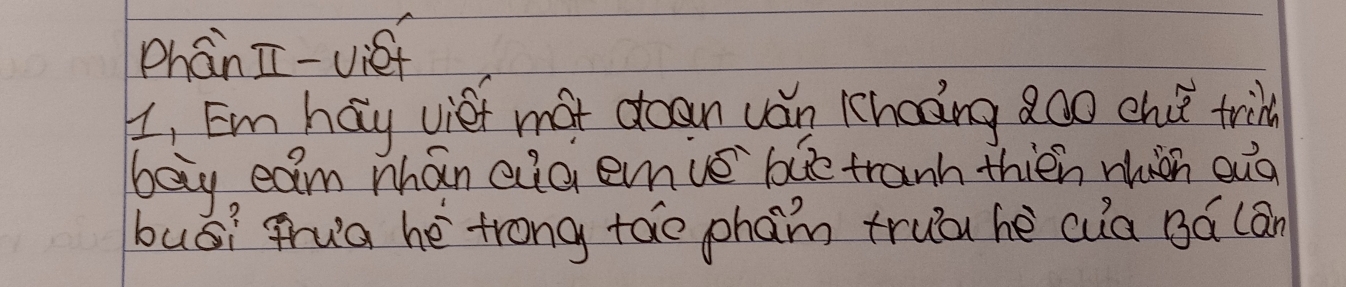 Phần II - Viết
1, Em hãy viết một đoạn văn khoảng 200 chữ trình
bày cảm nhận của em về bức tranh thiên nhiên của
buổi trưa hè trong tác phẩm trưa hè của Bá Lân